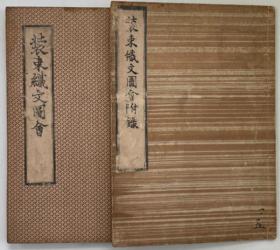 裝束織文圖會
裝束織文圖會附錄